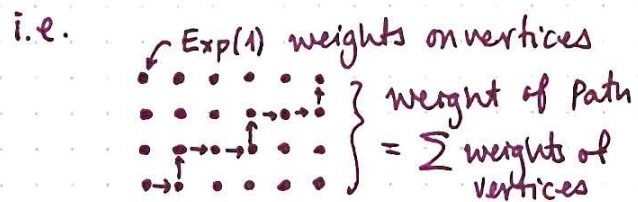 i.e.
Exp(1) weights on vertices
weight of Path
= Σ weights of
vertices